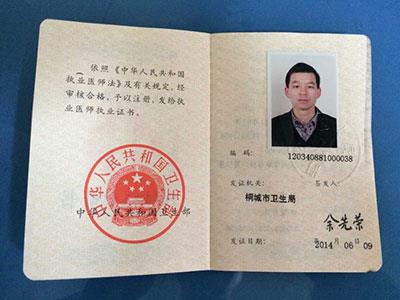 依照《中华人民共和国
执业医师法》及有关规定，经
审核合格，予以注册，发给执
业医师执业证书。
中华人民共和国卫生部
中华人民共和国卫生部
编码：
120340881000038
发证机关：
签发人：
桐城市卫生局
余先荣
发证日期：
2014 年 06 月 09